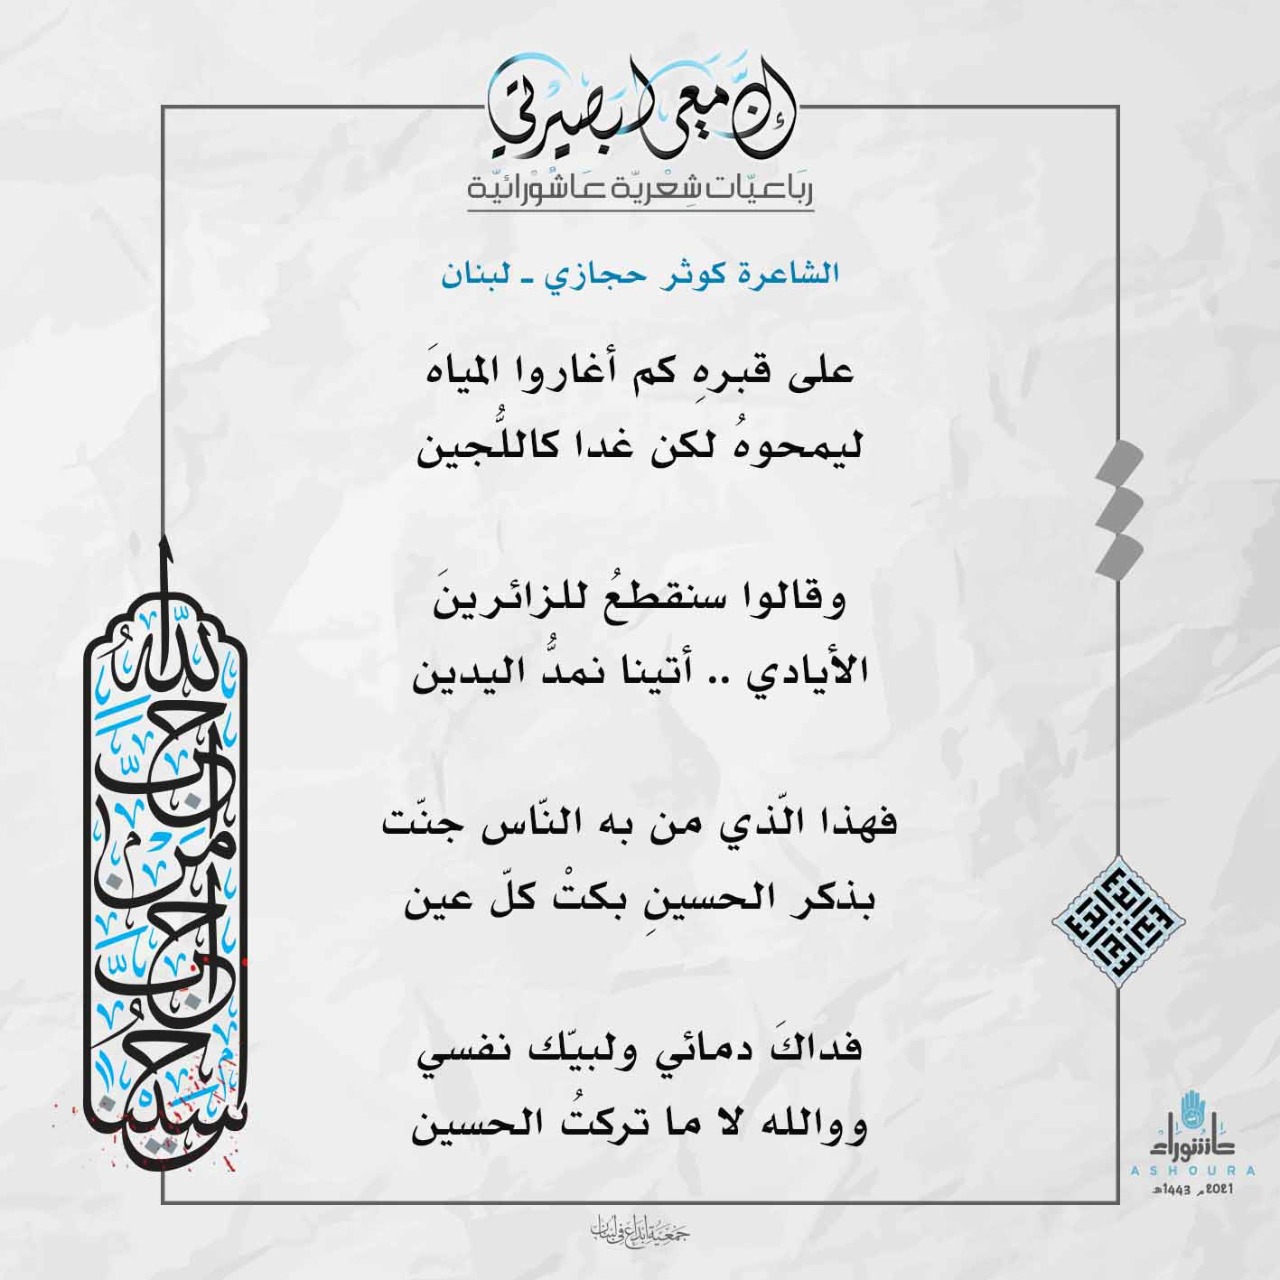 إنّ معي لبصيرتي
رباعيّات شِعْريّة عَاشُوْرائيّة
الشاعرة كوثر حجازي ـ لبنان
على قبرهِ كم أغاروا المياهَ
ليمحوهُ لكن غدا كاللُّجين
وقالوا سنقطعُ للزائرينَ
الأيادي .. أتينا نمدُّ اليدين
فهذا الّذي من به النّاس جنّت
بذكر الحسينِ بكتْ كلّ عين
فداكَ دمائي ولبيّك نفسي
ووالله لا ما تركتُ الحسين
أحب الله من أحب حسينا
عاشوراء
ASHOURA
2021م 1443هـ
جمعية إبداع في لبنان